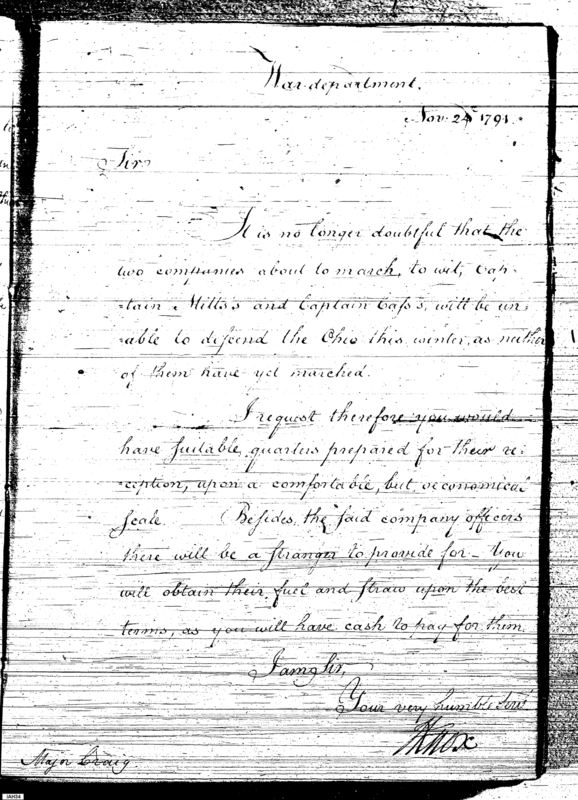 War department.
Nov. 24 1791.
Sir
It is no longer doubtful that the
two companies about to march, to wit, Cap-
-tain Mills's and Captain Cass's, will be un-
-able to descend the Ohio this winter, as neither
of them have yet marched.
I request therefore you would
have suitable quarters prepared for their re-
-ception, upon a comfortable, but œconomical
scale. Besides, the said company officers
there will be a stranger to provide for – You
will obtain their fuel and straw upon the best
terms, as you will have cash to pay for them.
I am Sir,
Your very humble Servt
HKnox
Major Craig
IAH34